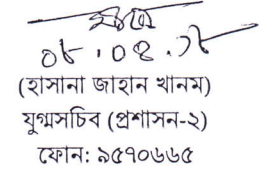 (হাসানা জাহান খানম)
যুগ্মসচিব (প্রশাসন-২)
ফোন: ৯৫৭০৬৬৫